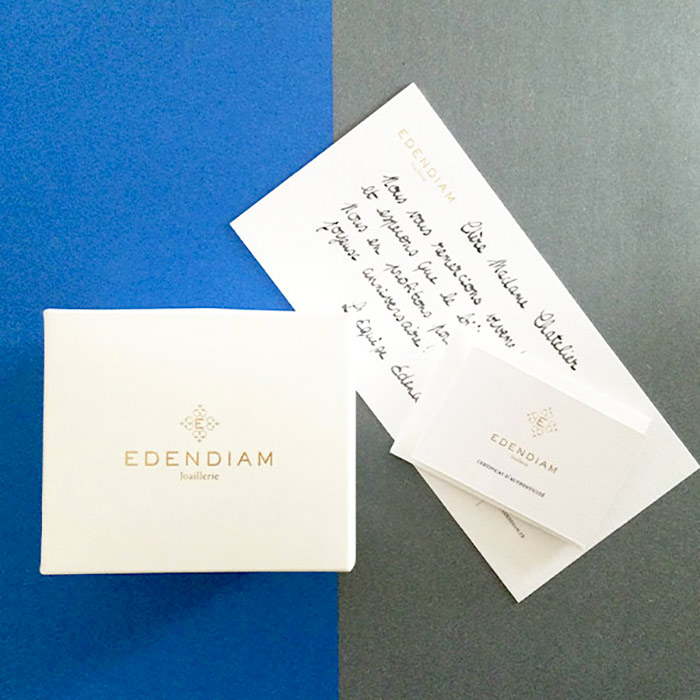 EDENDIAM
Joaillerie
Chère Madame Chatelier
Nous vous remercions
et espérons que le
Nous en profitons
joyeux anniversaire!
L'équipe Eden
E
EDENDIAM
Joaillerie
E
EDENDIAM
Joaillerie
CERTIFICAT D'AUTHENTICITÉ